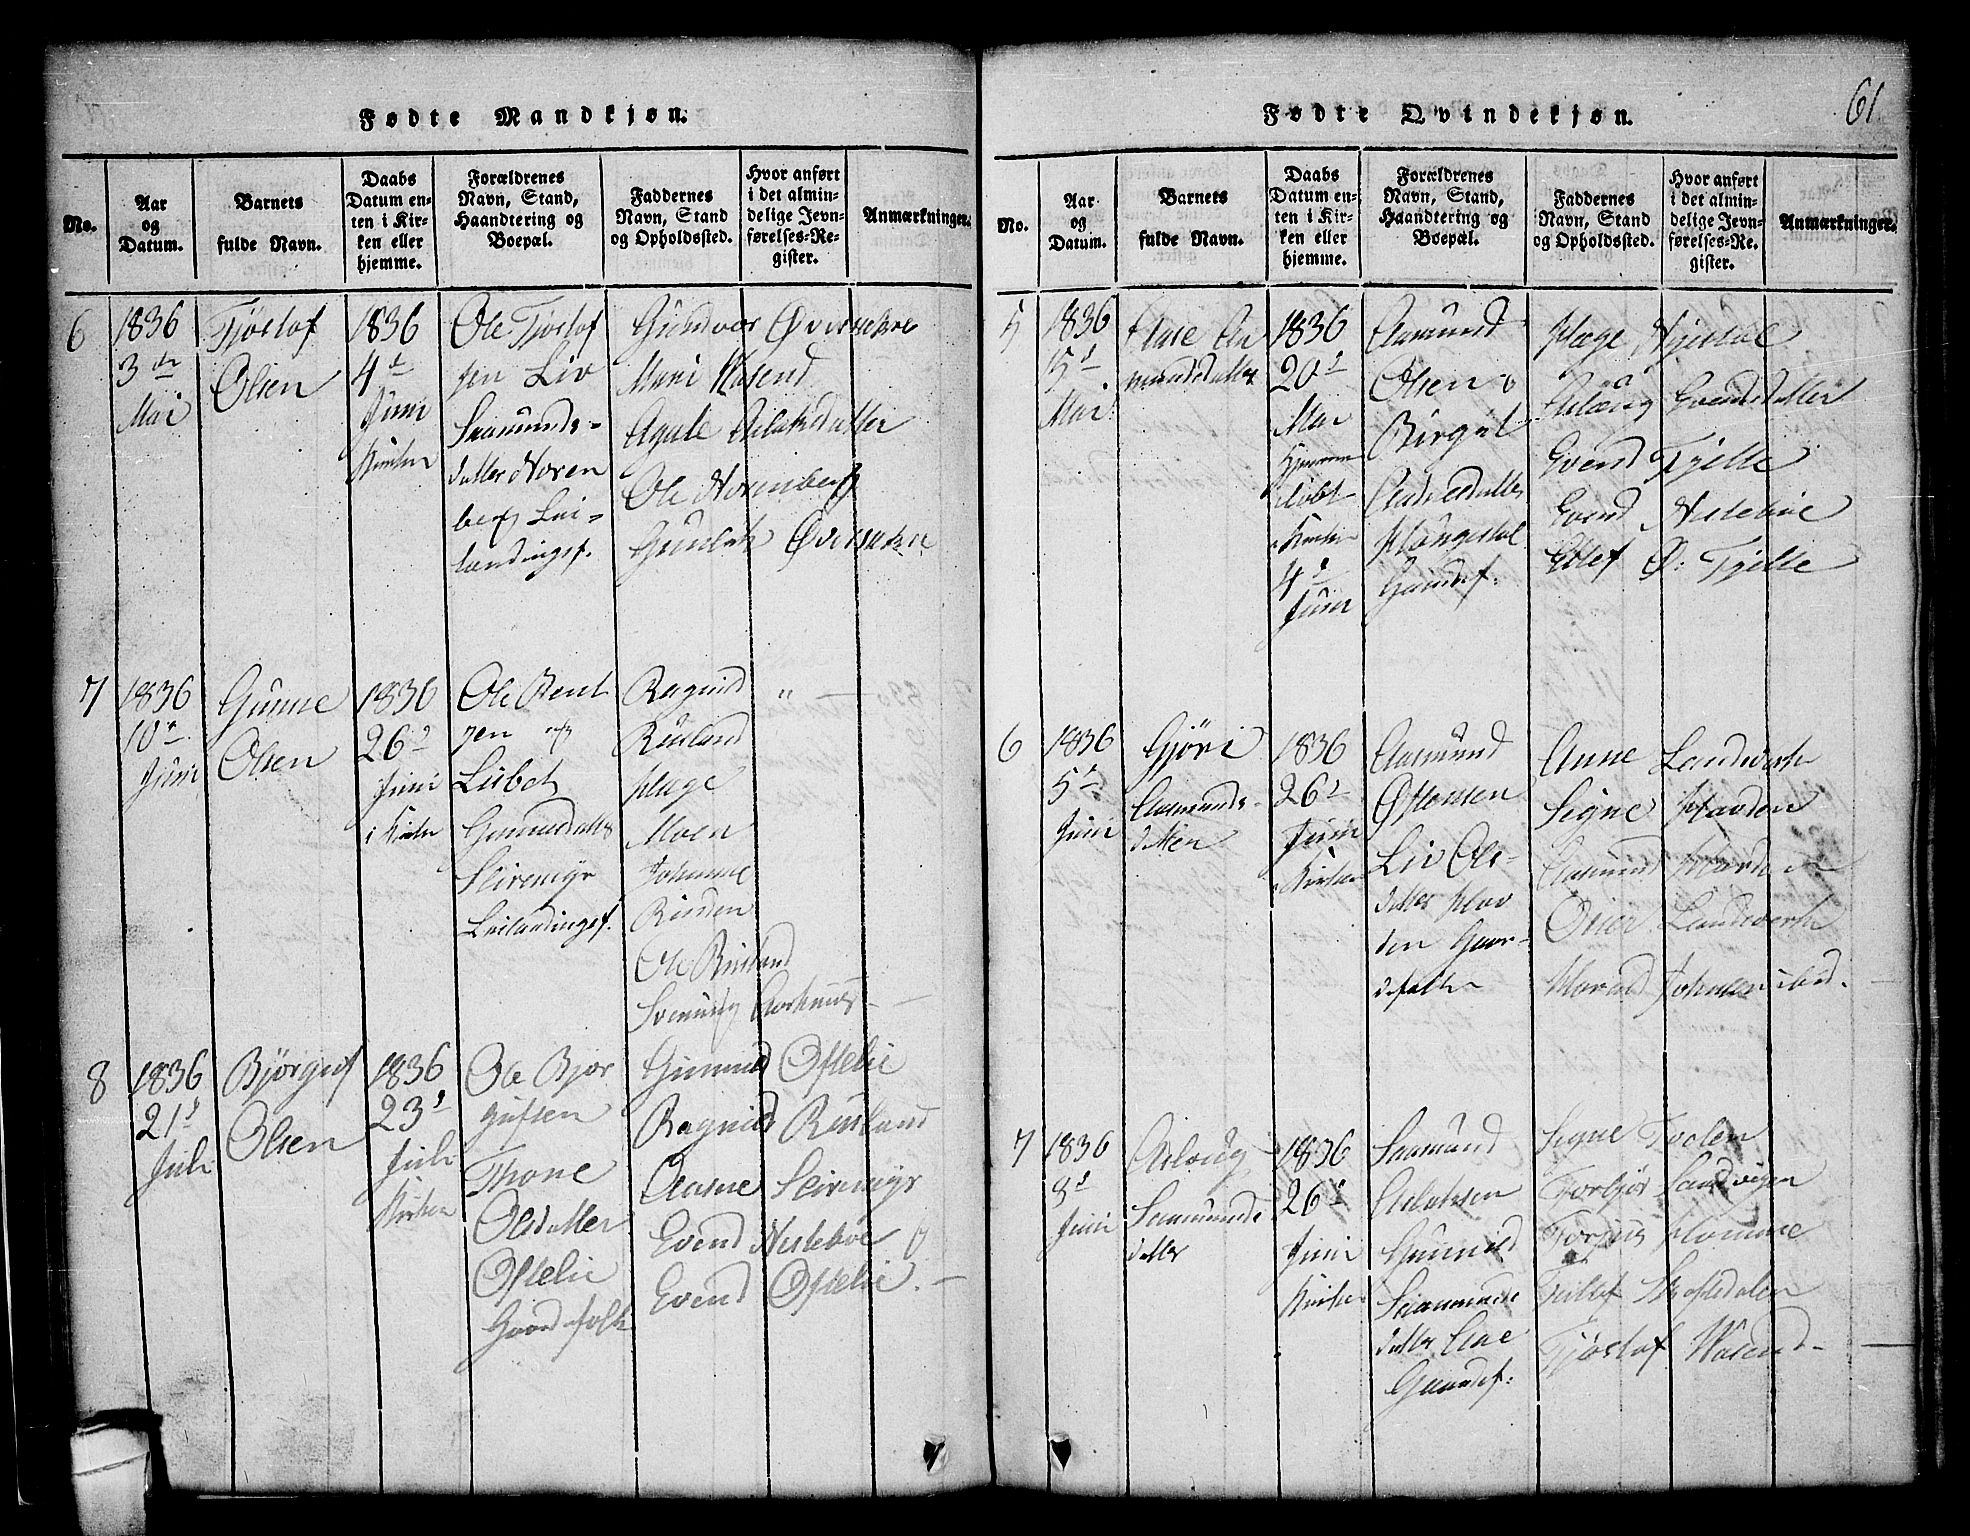 Fødte Mandkjøn.
No.
Aar
og
Datum.
Barnets
fulde Navn.
Daabs
Datum en-
ten i Kir-
ken eller
hjemme.
Forældrenes
Navn, Stand,
Haandtering og
Boepæl.
Faddernes
Navn, Stand
og Opholdssted.
Hvor anført
i det almin-
delige Jevn-
førelses-Re-
gister.
Anmærkninger.
6
1836
3die
Mai
Tjøstof
Olsen
1836
4d
Juni
Kirken
Ole Tjostof
sen Liv
Saamunds-
datter Noren
berg Lei-
landingsf.
Gundvor Øversakre
Mari Aasend
Agate Aslaksdatter
Ole Norenberg
Gunlek Øversakre
7
1836
10de
Juni
Gunne
Olsen
1836
26d
Juni
i Kirken
Ole Bent
sen og
Lisbet
Gunnusdatter
Seivemyr
Leilandingsf.
Ragnid
Rusland
Hage
Moen
Johanne
Rinden
Ole Rusland
Svenung
8
1836
21d
Juli
Bjørguf
Olsen
1836
23d
Juli
Kirken
Ole Bjor
gufsen
Thone
Olsdatter
Oftelie
Gaardsfolk
Gunnild Oftelie
Ragnild Rusland
Aasne Seivemyr
Evend Neslebøe
Evend Oftelie.
61.
Fødte Qvindekjøn.
No.
Aar
og
Datum.
Barnets
fulde Navn.
Daabs
Datum en-
ten i Kir-
ken eller
hjemme.
Forældrenes
Navn, Stand,
Haandtering og
Boepæl.
Faddernes
Navn, Stand
og Opholdssted.
Hvor anført
i det almin-
delige Jevn-
førelses-Re-
gister.
Anmærkninger.
5
1836
15d
Mai
Aase Aa
mundsdatter
1836
20d
Mai
Hjemme
døbt
i Kirken
4d
Juni
Aasmund
Olsen o
Birgit
Hougestøl
Gaardsf.
Hæge
Aslaug Evendsdatter
Evend Tjelle
Evend Neslebøe
Edlef Ø. Tjelle
6
1836
5d
Juni
Gjøri
Aasmunds-
datter
1836
26d
Juni
i Kirken
Aasmund
Øftensen
Liv Ols-
datter Hav
den Gaar-
dsfolk
Anne Landsverk
Signe Havden
Aasmund Havden
Landsverk
Harald Johnsen ibid.
7
1836
8d
Juni
Aslaug
Saamunds
datter
1836
26d
Juni
Kirken
Saamund
Aslaksen
Gunnild
Saamunds
datter
Gaardsf.
Signe Tveten
Torbjør Sandvigen
Torjus Homme
Tjøstof Aasend